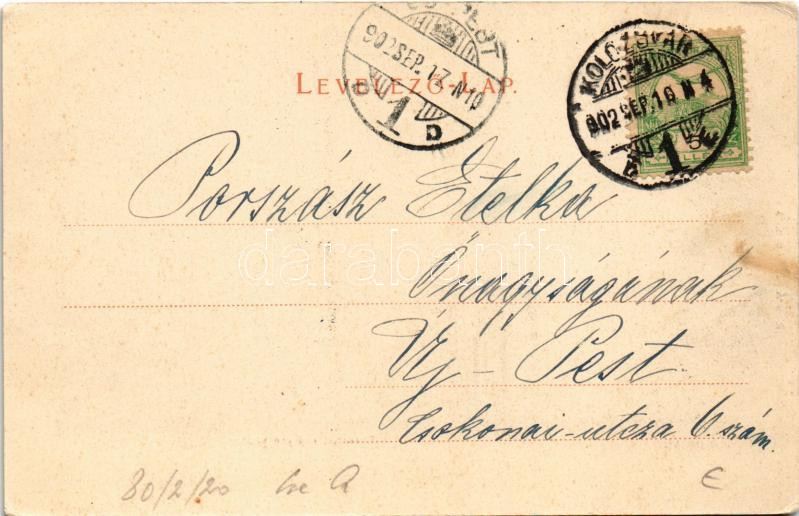 LEVELEZŐ-LAP.
902 SEP. 17. N 10
1
D
KOLOZSVÁR
902 SEP. 16 N 4
1
5
Porszász Etelka
Őnagyságának
Új-Pest
Csokonai-utcza 6. szám.
darabanth
80/2/20